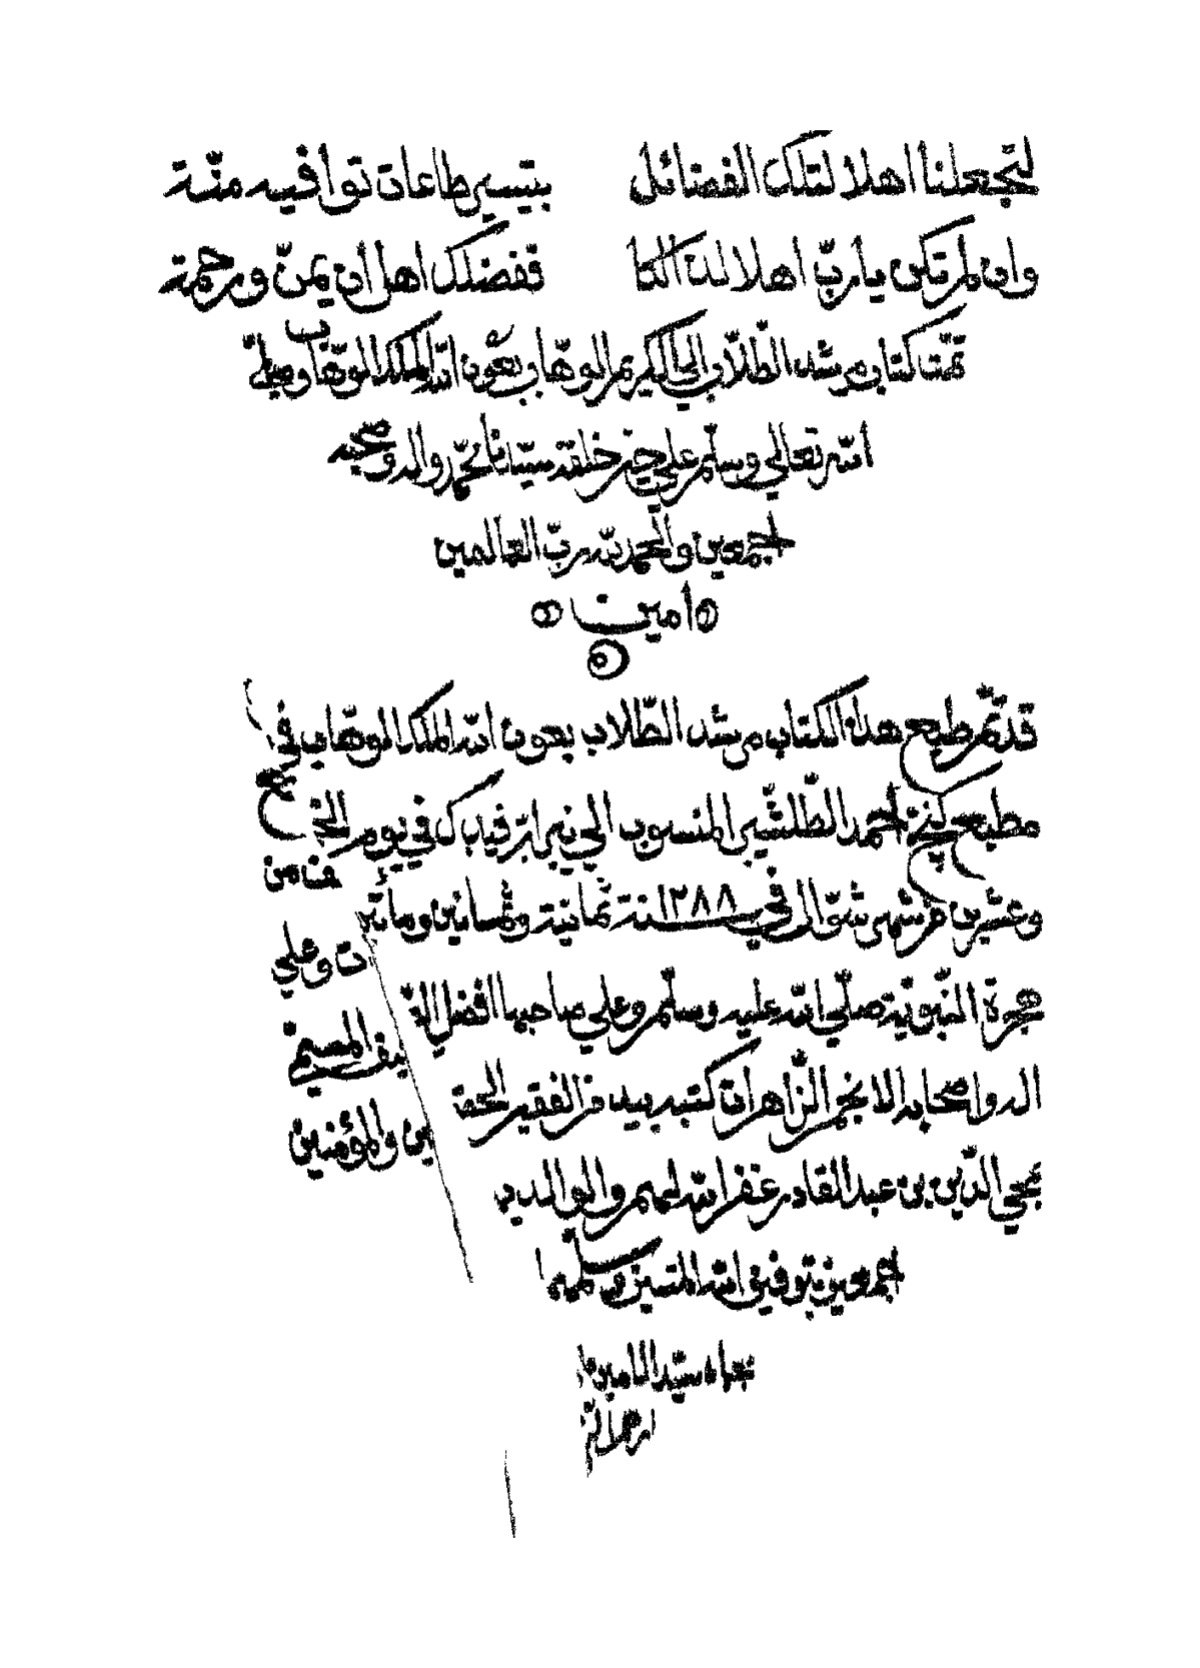 لتجعلنا اهلا لتلك الفضائل بتيسير طاعات توافيه منّة
وان لم تكن يا ربّ اهلا لذا لكا ففضلك اهل أن يمنّ ورحمة
تمّت كتاب مرشد الطّلّاب الى الكريم الوهّاب بعون الله الملك الوهّاب وصلّى
الله تعالى وسلّم على خير خلقه سيّدنا محمّد واله وصحبه
اجمعين والحمد لله ربّ العالمين
امين
قد تمّ طبع هذا الكتاب مرشد الطّلاب بعون الله الملك الوهّاب في
مطبع احمد المنسوب الى في يوم
وعشرين من شهر شوّال في سنة ١٢٨٨ ثمانية وثمانين ومأتين من
هجرة النّبويّة صلّى الله عليه وسلّم وعلى صاحبها افضل وعلى
اله واصحابه الانجم الزّاهرات كتبه بيده الفقير
محي الدّين بن عبد القادر غفر الله لهم ولوالديه والمؤمنين
اجمعين بتوفيق الله
بجاه سيّد